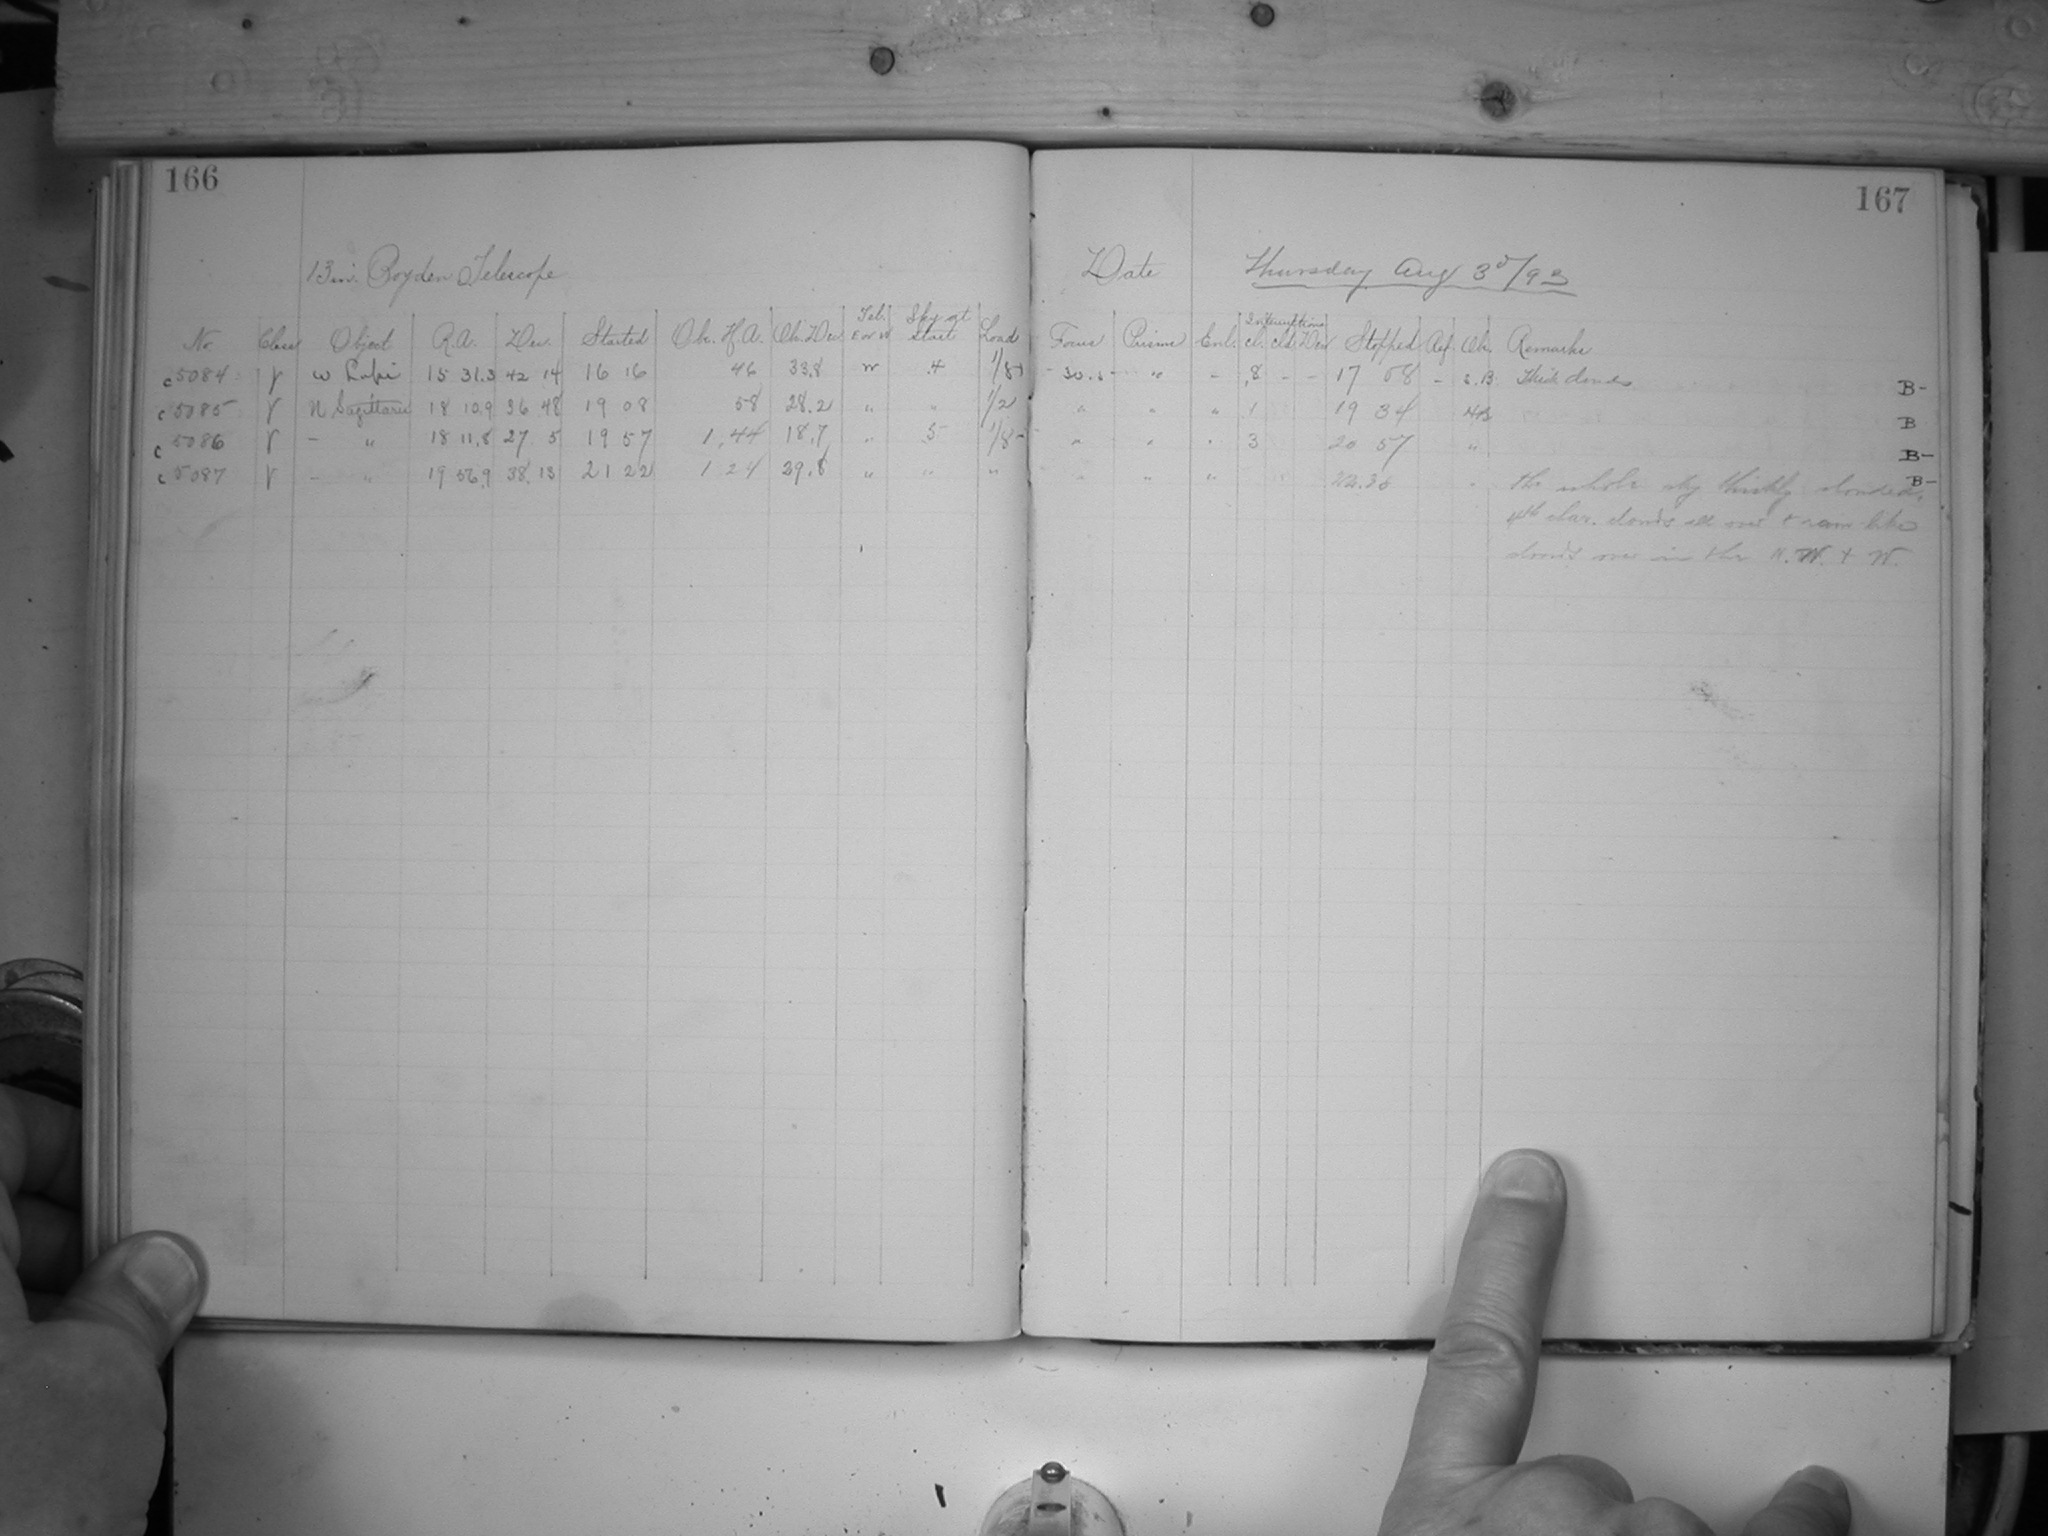 166
13 in. Boyden Telescope
No. Class Object R.A. Dec. Started Obs. H.A. Obs. Dec. Tel. E or W Sky at start Load
c 5084 γ ω Lupi 15 31.3 42 14 16 16 46 33.8 w 4 1/8
c 5085 γ N. Sagittarii 18 10.9 36 48 19 08 58 28.2 " " 1/2
c 5086 γ - " 18 11.8 27 5 19 57 1,44 18.7 " 5 1/8
c 5087 γ - " 19 56.9 38 13 21 22 1 24 29.8 " " "
167
Date Thursday Aug 3d/93
Focus Prism Enl. Interruptions cl. cld Dev Stopped Ref. Obs. Remarks
30. " - 8 - - 17 08 - B. Thick clouds B-
" " " 1 19 34 B
" " " 3 20 57 " B-
" " " " the whole sky thickly clouded, B-
4th clouds all over + rain like
clouds over in the N.W. + W.